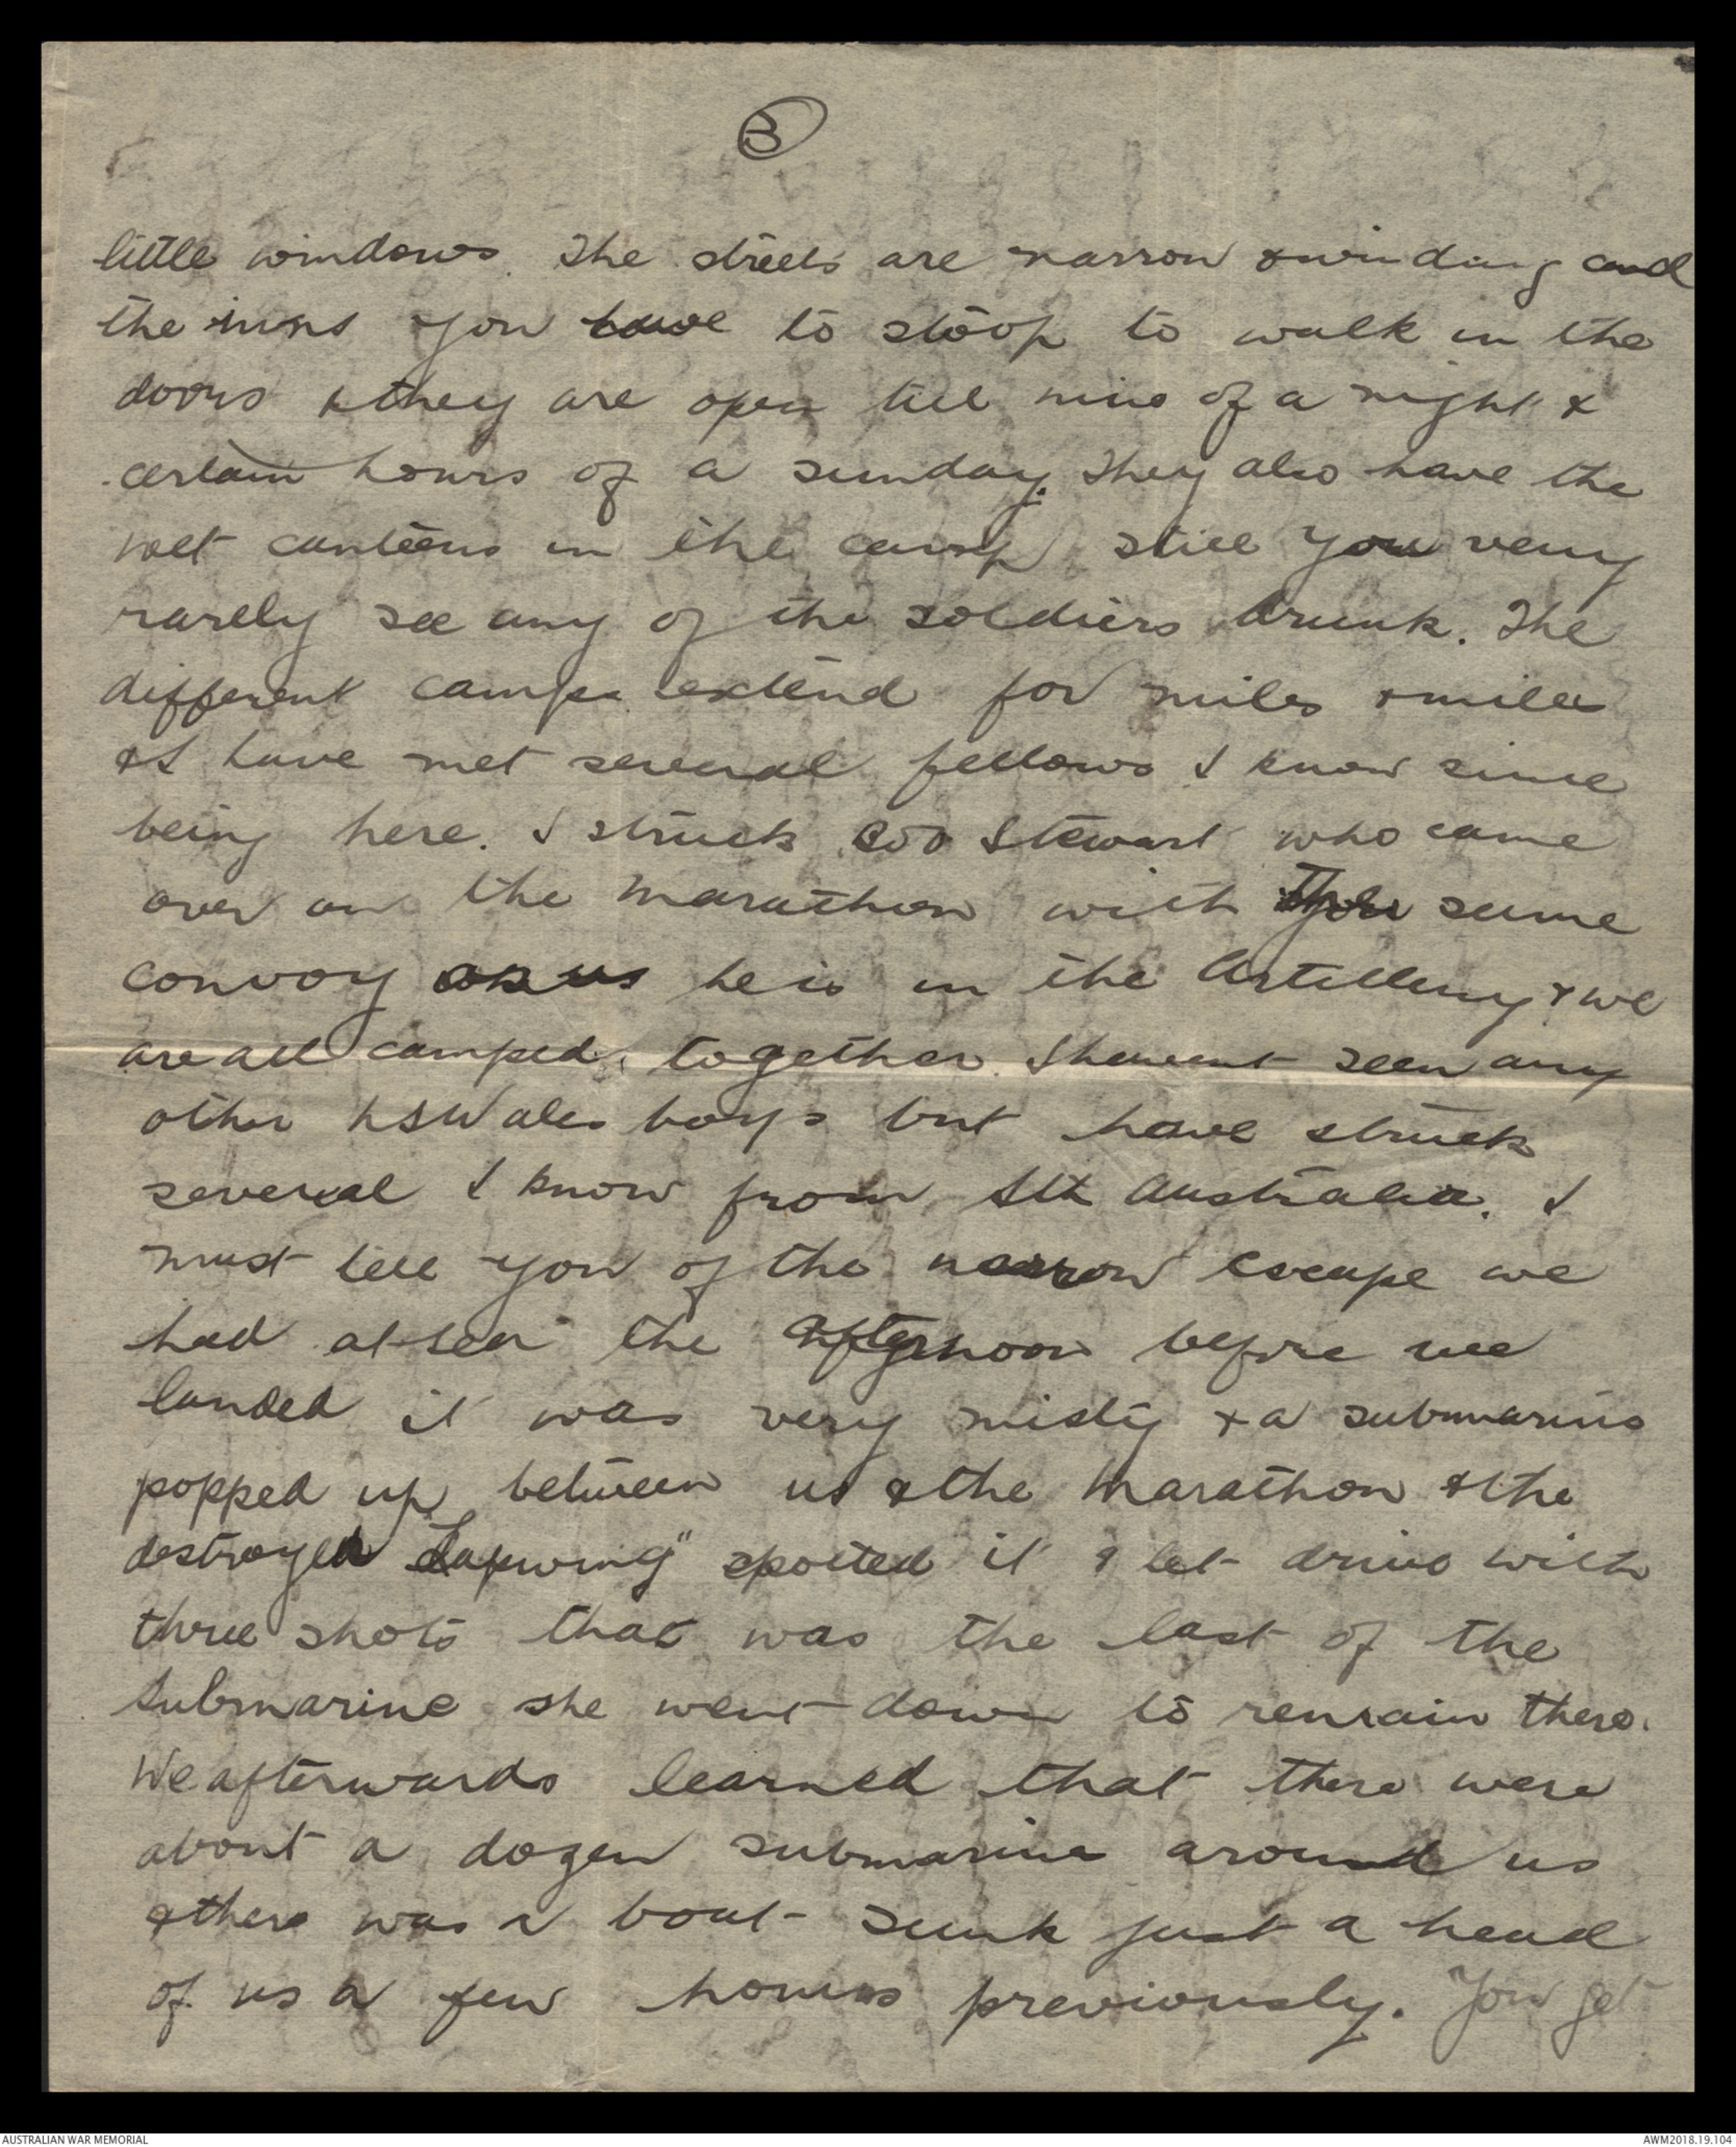 3
little windows. The streets are narrow & winding and
the inns you have to stoop to walk in the
doors & they are open till nine of a night &
certain hours of a Sunday. They also have the
wet canteens in the camp still you very
rarely see any of the soldiers drunk. The
different camps extend for miles & miles
& I have met several fellows I know since
being here. I struck Stewart who came
over on the Marathon with same
convoy as us he is in the Artillery & we
are all camped together. I havent seen any
other NSWales boys but have struck
several I know from Sth Australia. I
must tell you of the narrow escape we
had at sea the afternoon before we
landed it was very misty & a submarine
popped up between us & the Marathon & the
destroyer Lapwing" spotted it & let drive with
three shots that was the last of the
Submarine she went down to remain there.
We afterwards learned that there were
about a dozen submarine around us
& there was a boat sunk just a head
of us a few hours previously. You get
AUSTRALIAN WAR MEMORIAL
AWM2018.19.104